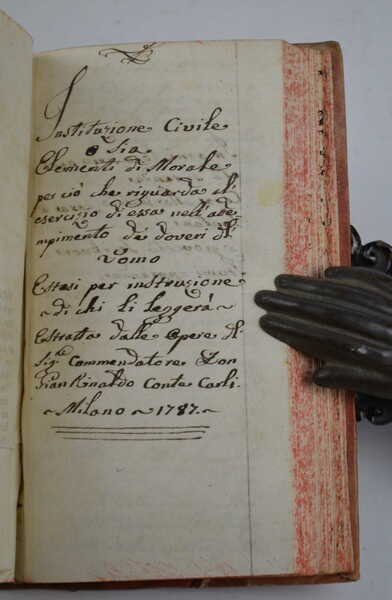 Instituzione Civile
o Sia
Elementi di Morale
per ciò che riguarda il
esercizio di essa nell'ade-
mpimento de doveri dl
Uomo
Estesi per instruzione
~ di chi li leggerà ~
Estratta dalle Opere dl
Sig.r Commendatore Don
Gian Rinaldo Conte Carli.
~ Milano ~ 1787. ~